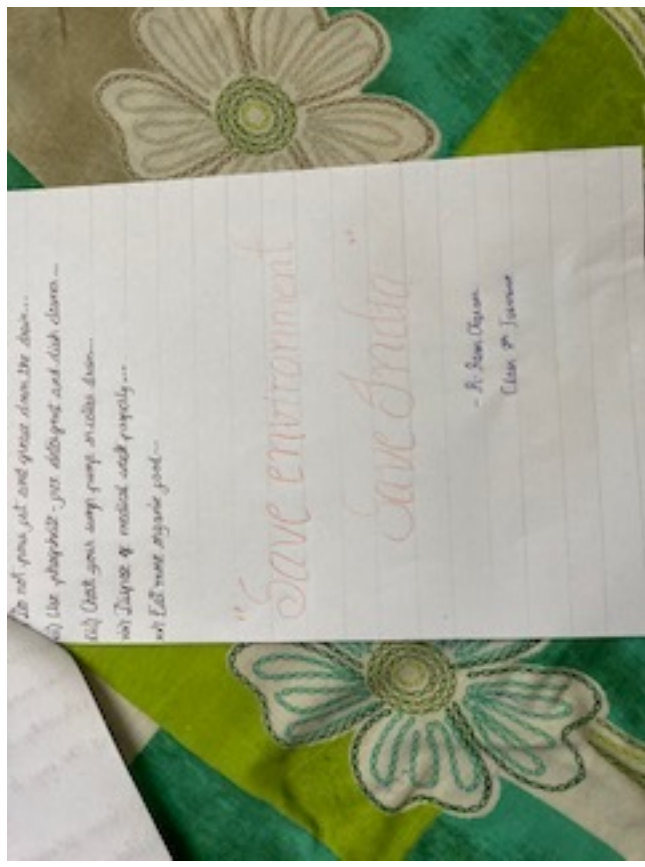 Do not pour fat and grease down the drain...
Use phosphate-free detergent and dish cleaner...
Check your sump pump or cellar drain...
Dispose of medical waste properly...
Eat more organic food...
"Save environment
Save India"
Class 8th